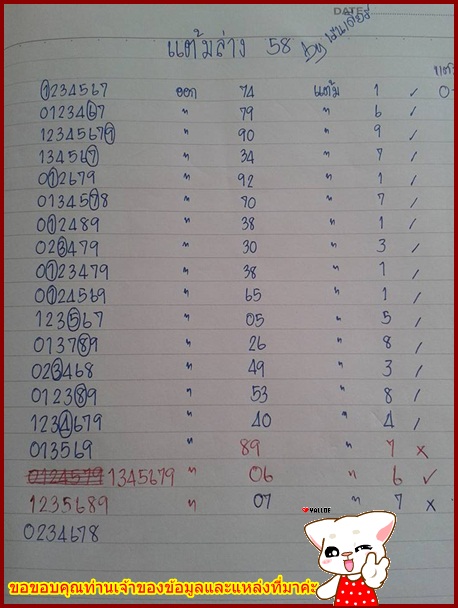 DATE
แต้มล่าง 58 by
1234567 ออก 74 แต้ม 1 ✓
0123467 " 79 " 6 ✓
12345679 " 90 " 9 ✓
134567 " 34 " 7 ✓
012679 " 92 " 1 ✓
0134578 " 70 " 7 ✓
012489 " 38 " 1 ✓
023479 " 30 " 3 ✓
0123479 " 38 " 1 ✓
0124569 " 65 " 1 ✓
123567 " 05 " 5 ✓
013789 " 26 " 8 ✓
023468 " 49 " 3 ✓
012389 " 53 " 8 ✓
1234679 " 40 " 4 ✓
013569 " 89 " 7 x
0124579 1345679 " 06 " 6 ✓
1235689 " 07 " 7 x
0234678
YALLOE
ขอขอบคุณท่านเจ้าของข้อมูลและแหล่งที่มาค่ะ